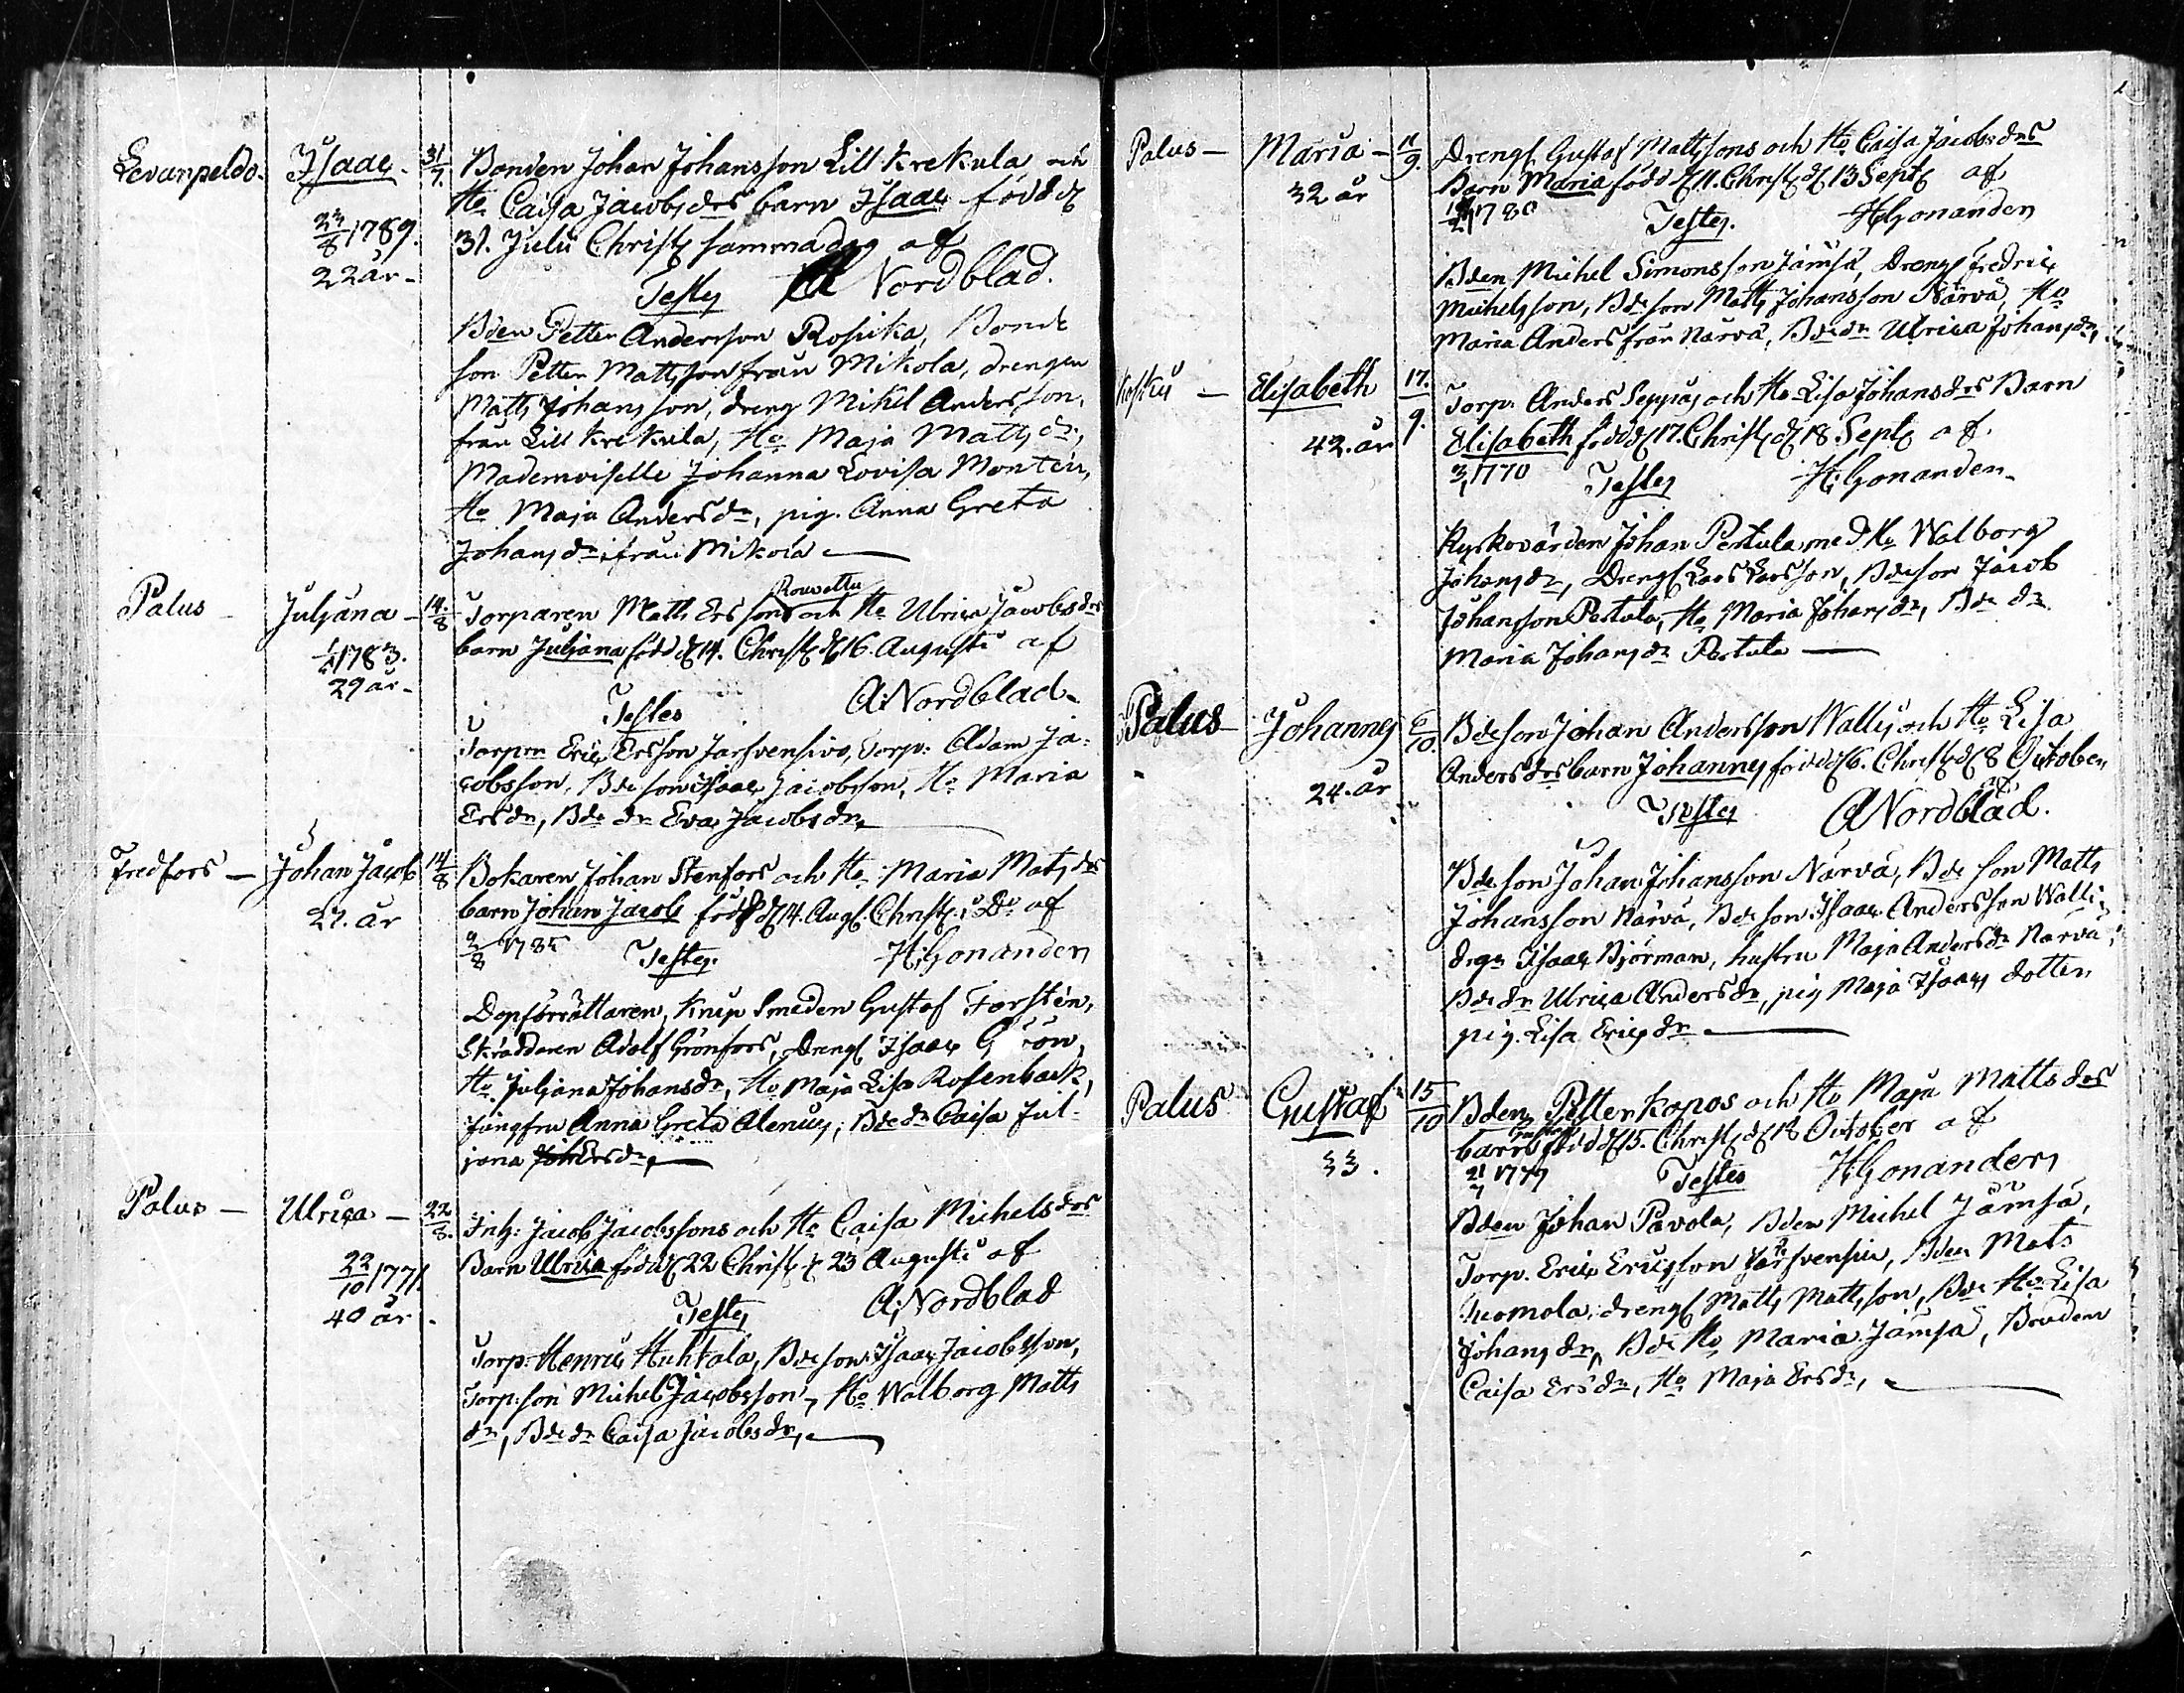 Levanpeldo. Isaac. 31/7. Bonden Johan Johansson Lill Krekula och
Ho Caisa Jacobsdrs barn Isaac född d
22/8 1789. 31. Julii Christ samma dag af
22 år - Testes A Nordblad.
Bden Petter Andersson Rosika, Bonde
son Petter Mattsson från Mikola, drengen
Matts Johansson, dreng Mikel Andersson,
från Lill Krekula, Ho Maja Matts dr,
Mademoiselle Johanna Lovisa Montein,
Ho Maja Anders dr, pig. Anna Greta
Johans dr från Mikola
Palus - Juljana - 14/8 Torparen Matts Ersson Rouvettu och Ho Ulrica Jacobsdrs
1/1 1783. barn Juljana född d 14. Christ d 16. Augusti af
29 år -
Testes A: Nordblad.
Torpen Eric Ersson Jarsvensivo, Torp: Adam Ja-
cobsson, Bde son Isaac Jacobsson, Ho Maria
Ers dr, Bde dr Eva Jacobs dr,
Fredfors - Johan Jacob 14/8 Bokaren Johan Stenfors och Ho Maria Mats drs
27. år barn Johan Jacob född d 14. Aug. Christ d: Do af
2/8 1785 Testes. H: Gonander
Dopförrättaren, Knip Smeden Gustaf Forstén,
Skräddaren Adolf Grönfors, Dreng Isaac
Ho Juljana Johansdr, Ho Maja Lisa Rosenback,
jungfru Anna Greta Alenius, Bde dr Caisa Jul-
jana Ersdr,
Palus - Ulrica - 22/8. Inh: Jacob Jacobssons och Ho Caisa Michels drs
22/10 1771. Barn Ulrica född d 22 Christ d 23 Augusti af
40 år. Testes A: Nordblad
Torp: Henric Huhtala, Bde son Isaac Jacobsson,
Torp: son Michel Jacobsson, Ho Walborg Matts
dr, Bde dr Caisa Jacobs dr,
Palus - Maria - 11/9. Dreng Gustaf Mattssons och Ho Caisa Jacobsdrs
32 år Barn Maria född d 11. Christ d 13 Sept af
1780 Testes. H Gonander
Bden Michel Simonsson Jämsä, Dreng Fredric
Michelsson, Bde son Matts Johansson Närvä, Ho
Maria Anders från Närvä, Bde dr Ulrica Johans dr,
Koskü - Elisabeth 17./9. Torp: Anders Seppäs och Ho Lisa Johans drs Barn
42. år Elisabeth född d 17. Christ d 18. Sept af.
1770 Testes H: Gonander
Kyrkovärden Johan Pertula med Ho Walborg
Johans dr, Dreng Lars Larsson, Bde son Jacob
Johansson Pertula, Ho Maria Johans dr, Bde dr
Maria Johans dr Pertula
Palus - Johannes 6/10. Bde son Johan Andersson Wallis och Ho Lisa
Anders drs barn Johannes född d 6. Christ d 8 October
24. år af
Testes A Nordblad.
Bde son Johan Johansson Närvä, Bde son Matts
Johansson Närvä, Bde son Isaac Andersson Walli,
drgn Isaac Björman, hustru Maja Anders dr Närvä,
Bde dr Ulrica Anders dr, pig Maja Isaacs dotter
pig. Lisa Erics dr
Palus Gustaf 15/10 Bden Petter Kapos och Ho Maja Matts drs
33. barn Gustaf född d 15. Christ d 18 October af
21/7 1779 Testes H Gonander
Bden Johan Pavola, Bden Michel Jämsä,
Torp. Eric Ericsson Jarsvensiu, Bden Mats
Tuomola, dreng Matts Mattsson, Bde Ho Lisa
Johans dr, Bde Ho Maria Jämsä, Bruden
Caisa Ers dr, Ho Maja Ers dr,